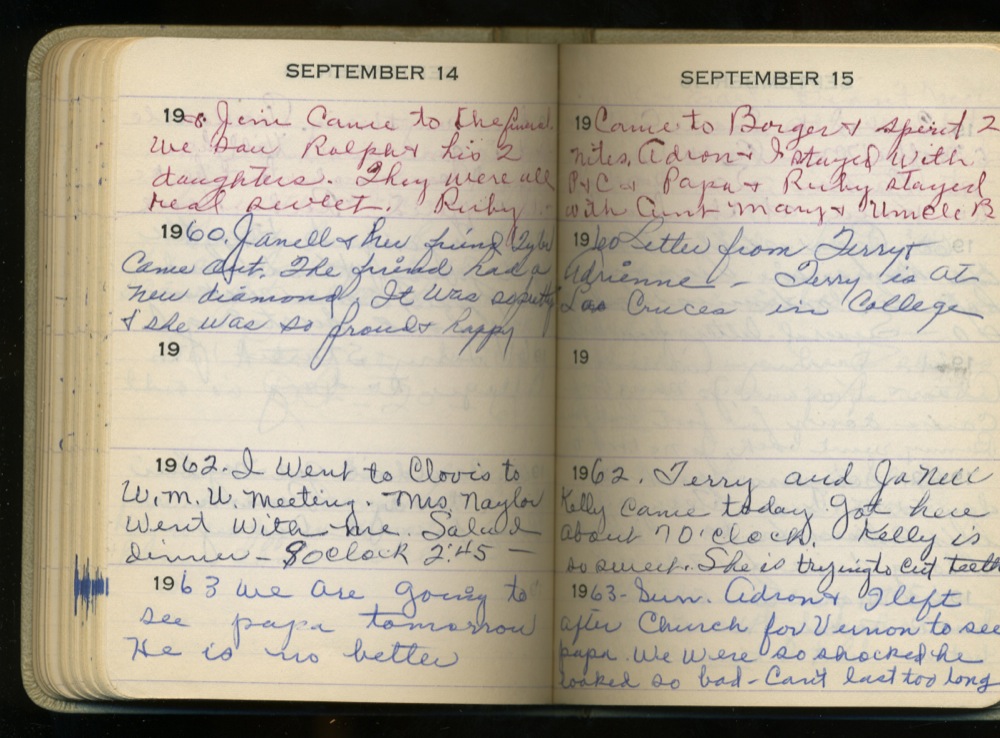 SEPTEMBER 14
19 Jim Came to the funeral.
We saw Ralph & his 2
daughters. They were all
real sweet. Ruby
1960. Janell & her friend
Came out. The friend had a
new diamond. It was so pretty
& she was so proud & happy
19
1962. I Went to Clovis to
W.M.U. Meeting. Mrs Naylor
Went With me. Salad
dinner - 8 oclock 2:45 -
1963 we are going to
see papa tomorrow
He is no better
SEPTEMBER 15
19 Came to Borger & spent 2
nites, Adron & I stayed with
P & C & Papa & Ruby stayed
with Aunt Mary & Uncle B
1960 Letter from Terry &
Adrienne - Terry is at
Las Cruces in College
19
1962. Terry and Janell
Kelly came today got here
about 7 O'clock. Kelly is
so sweet. She is trying to cut teeth
1963 - Sun. Adron & I left
after Church for Vernon to see
papa. We Were so shocked he
looked so bad - Can't last too long